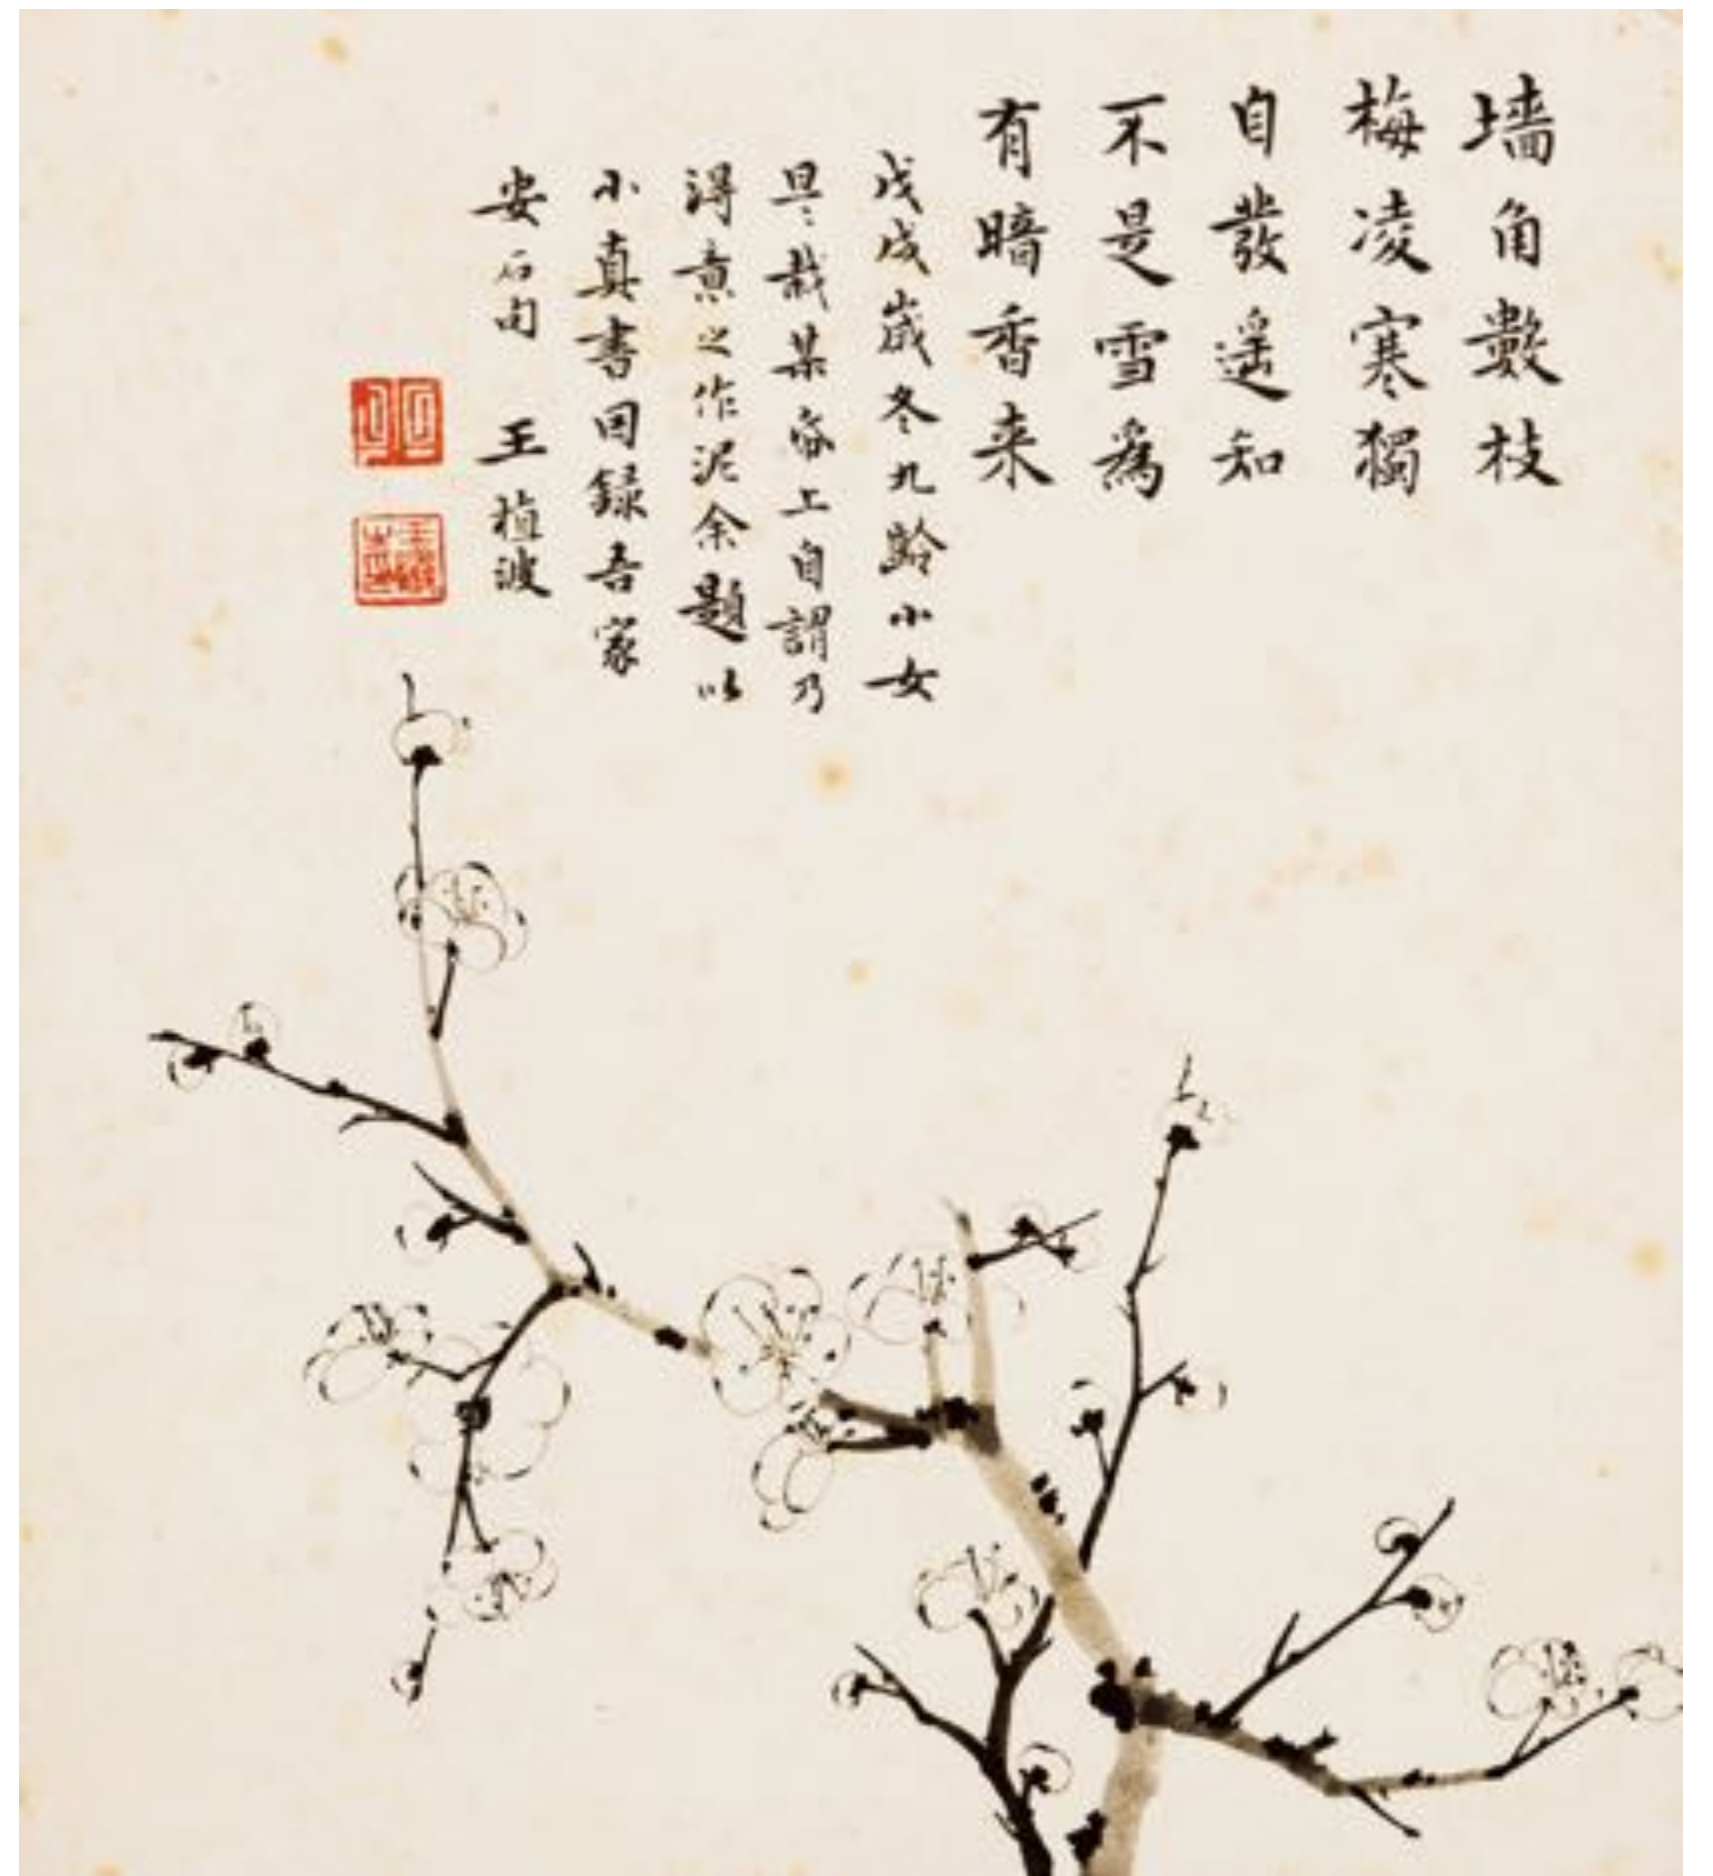 墙角數枝
梅凌寒獨
自發遥知
不是雪為
有暗香来
戊戌歲冬九齡小女
旦〻栽某帋上自謂乃
淂意之作泥余題以
小真書因録吾家
安石句 王植波